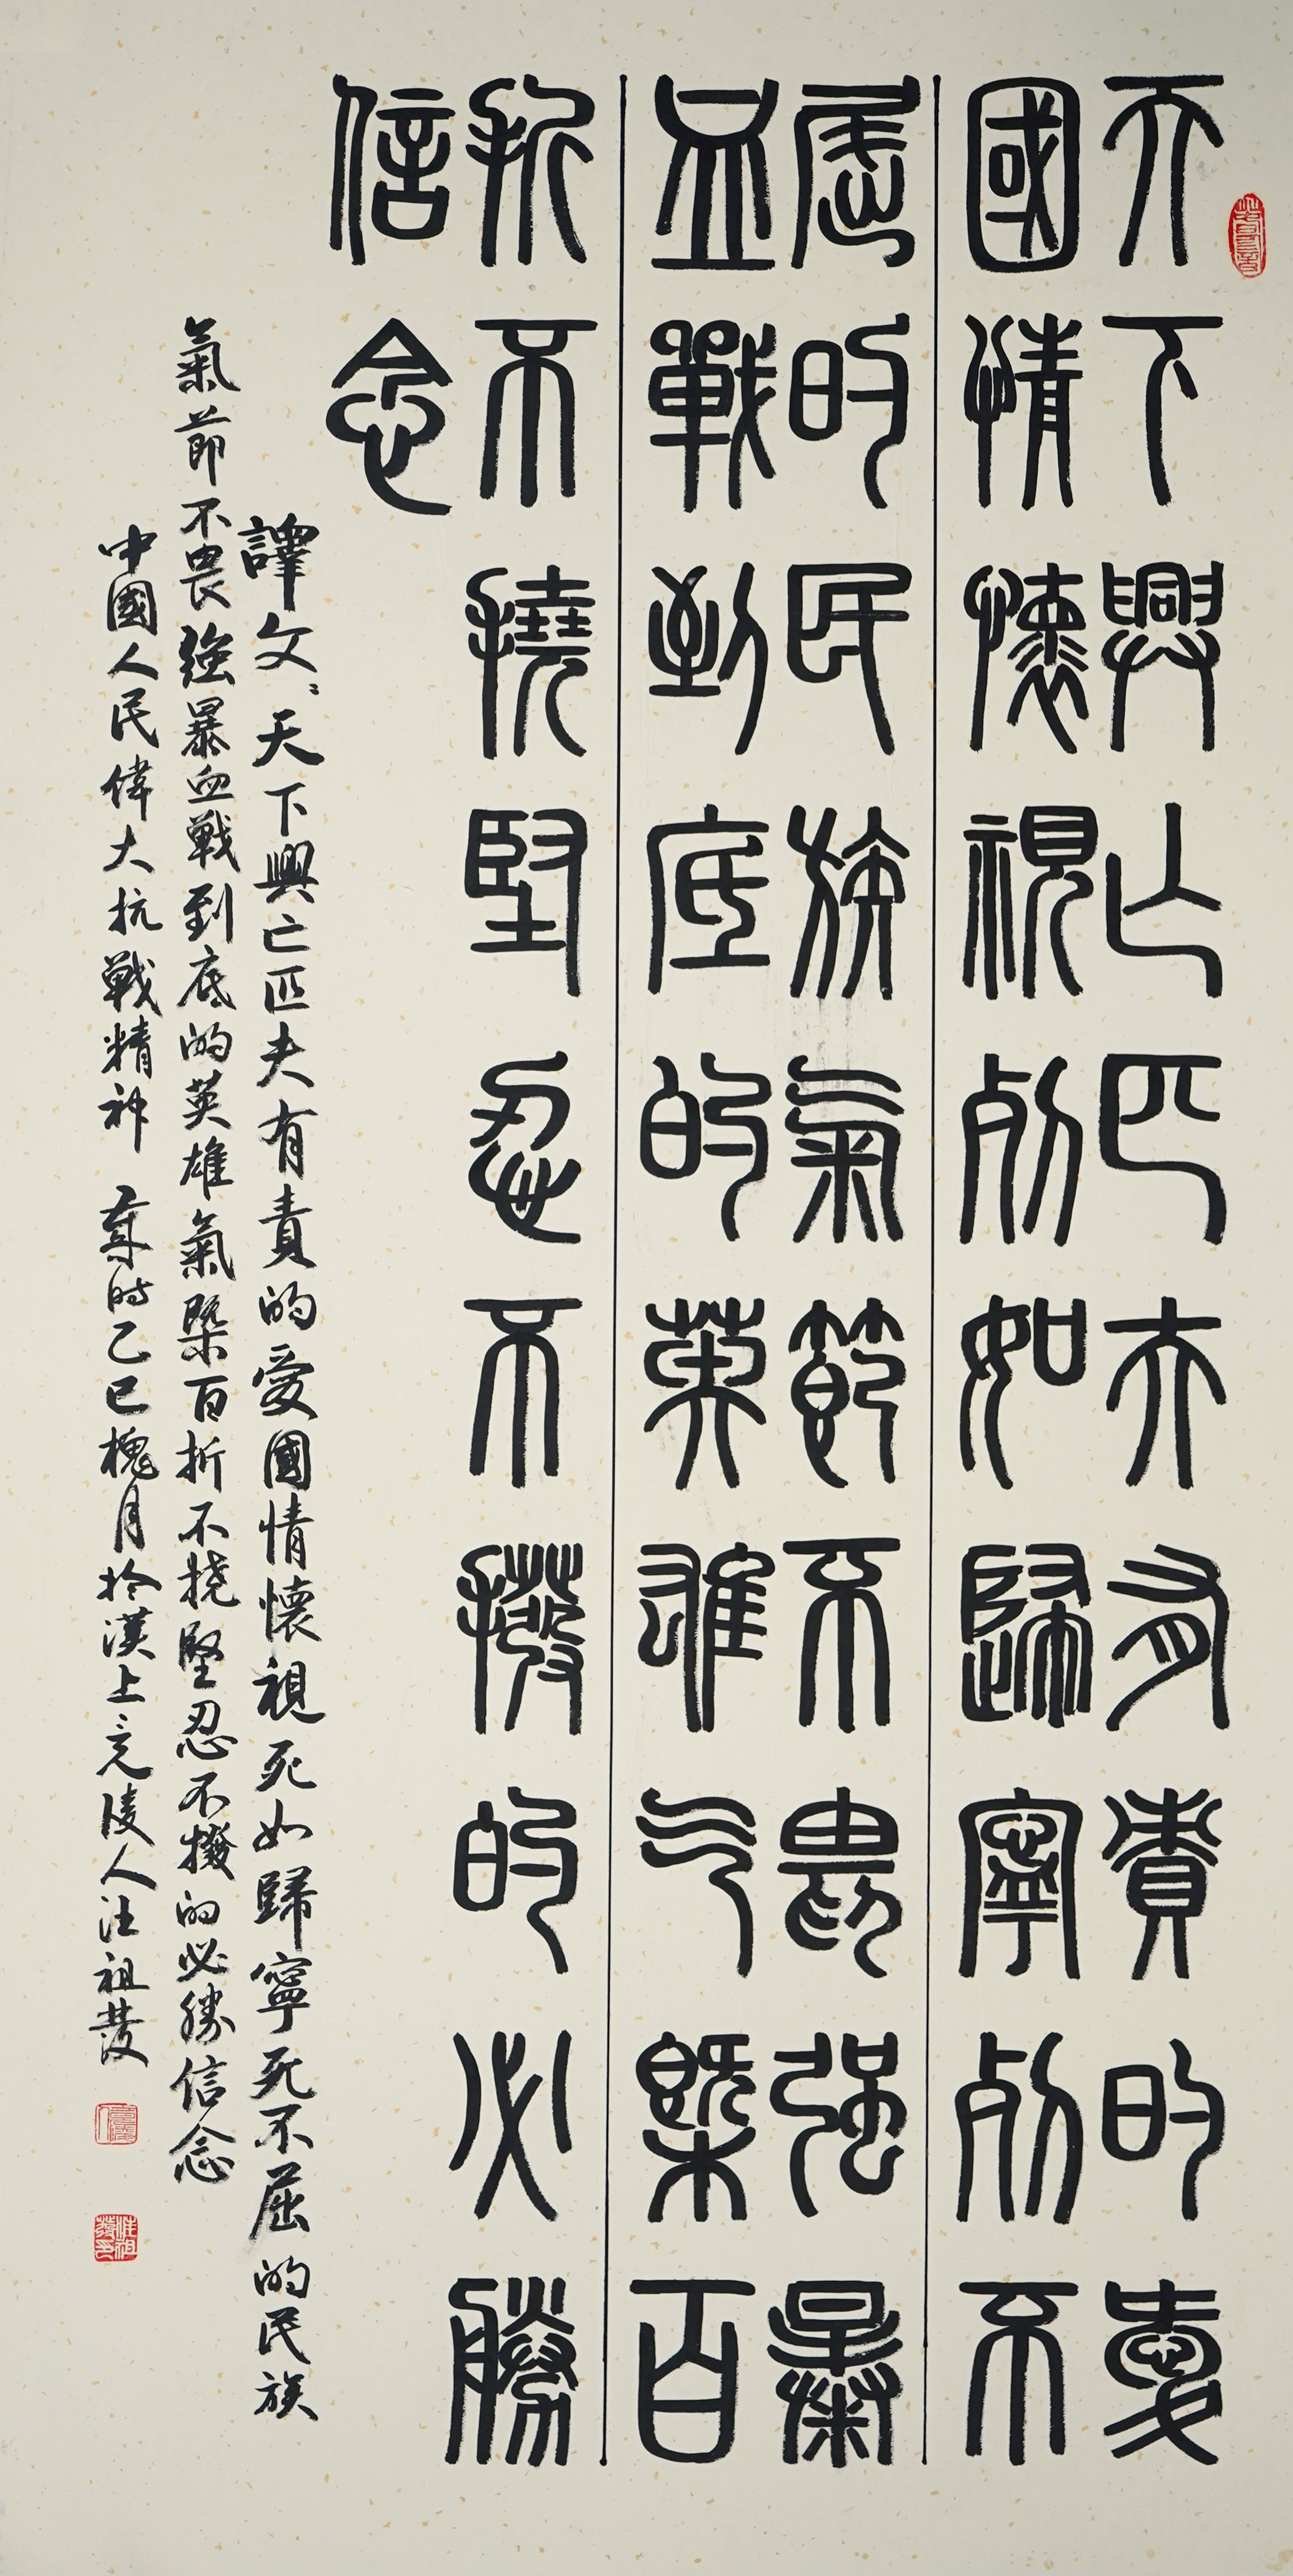 天下興亡匹夫有責的愛
國情懷視死如歸寧死不
屈的民族氣節不畏強暴
血戰到底的英雄气槩百
折不撓堅忍不撥的必勝
信念
譯文：天下興亡匹夫有責的愛國情懷視死如歸寧死不屈的民族
氣節不畏強暴血戰到底的英雄氣槩百折不撓堅忍不撥的必勝信念
中國人民偉大抗戰精神 歲時乙巳槐月於漢上竟陵人汪祖發